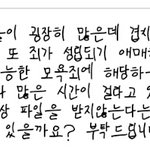 들이 굉장히 많은데 겹치
또 죄가 성립되기 애매하
능한 모욕죄에 해당하
다 많은 시간이 걸린다고 있
상 파일을 받지않는다는
있을까요? 부탁드립니